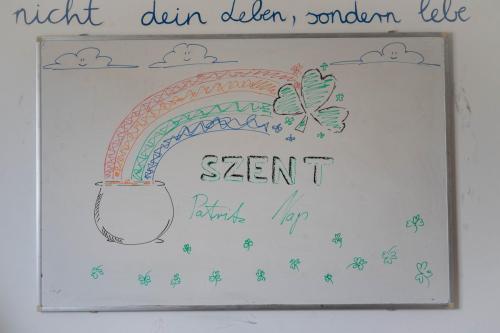 nicht dein Leben, sondern lebe
SZENT
Patrik Nap